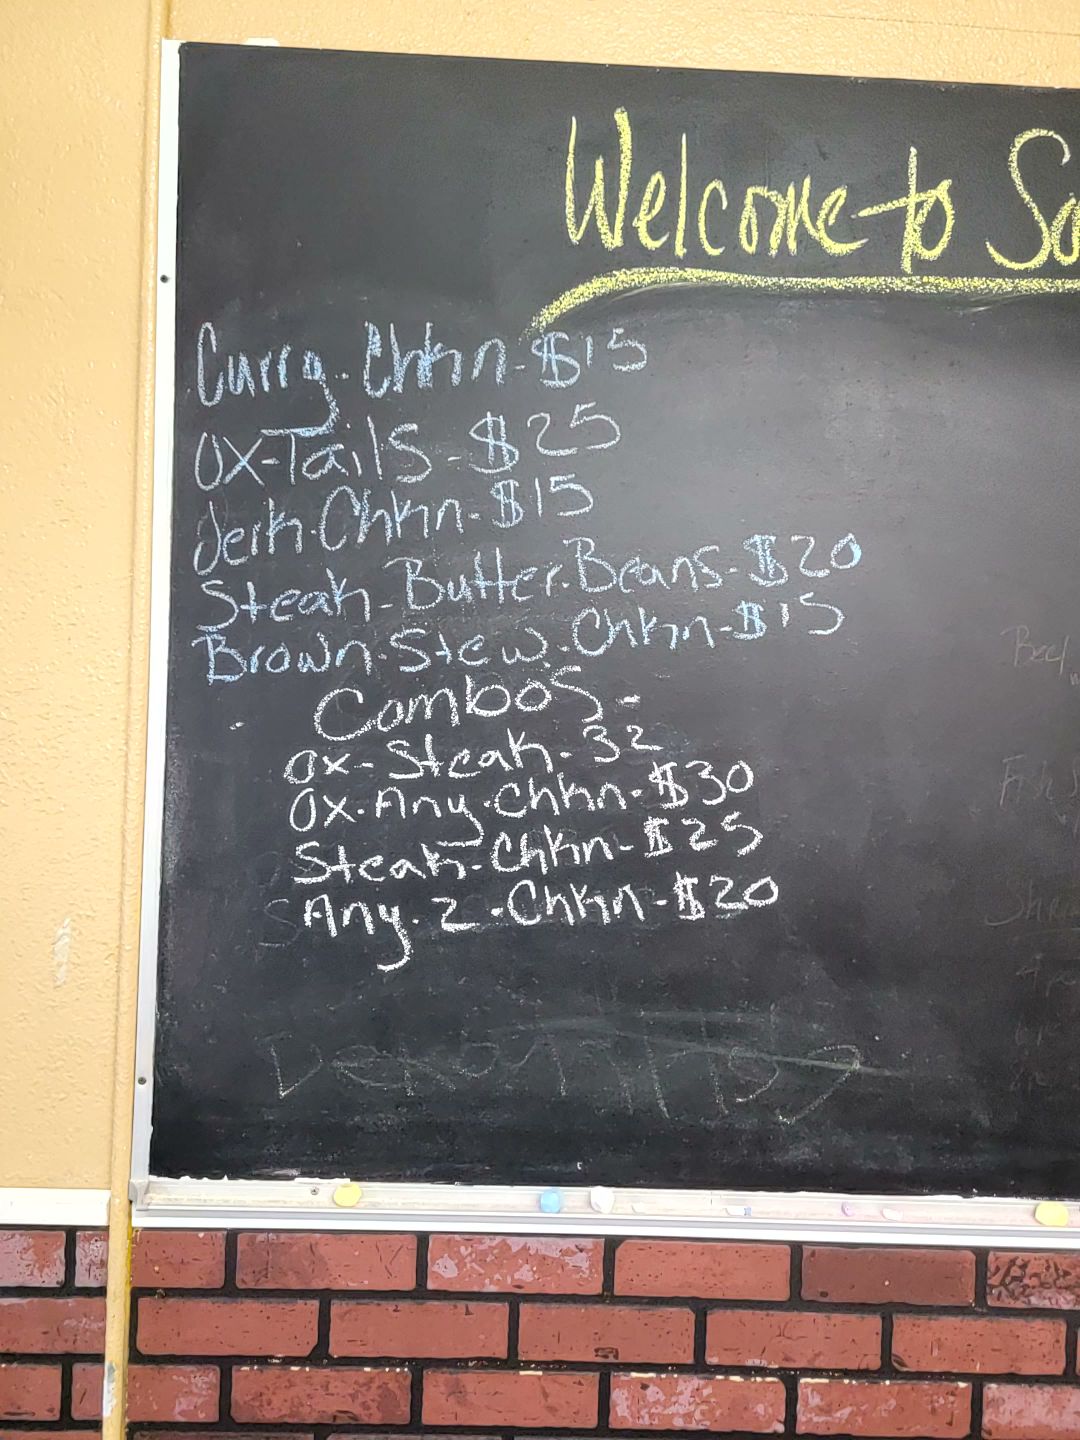 Welcome to So
Curry. Chkn - $15
Ox-Tails - $25
Jerk. Chkn - $15
Steak - Butter. Beans - $20
Brown. Stew. Chkn - $15
Combos -
Ox - Steak - 32
Ox. Any. Chkn - $30
Steak - Chkn - $25
Any. 2. Chkn - $20